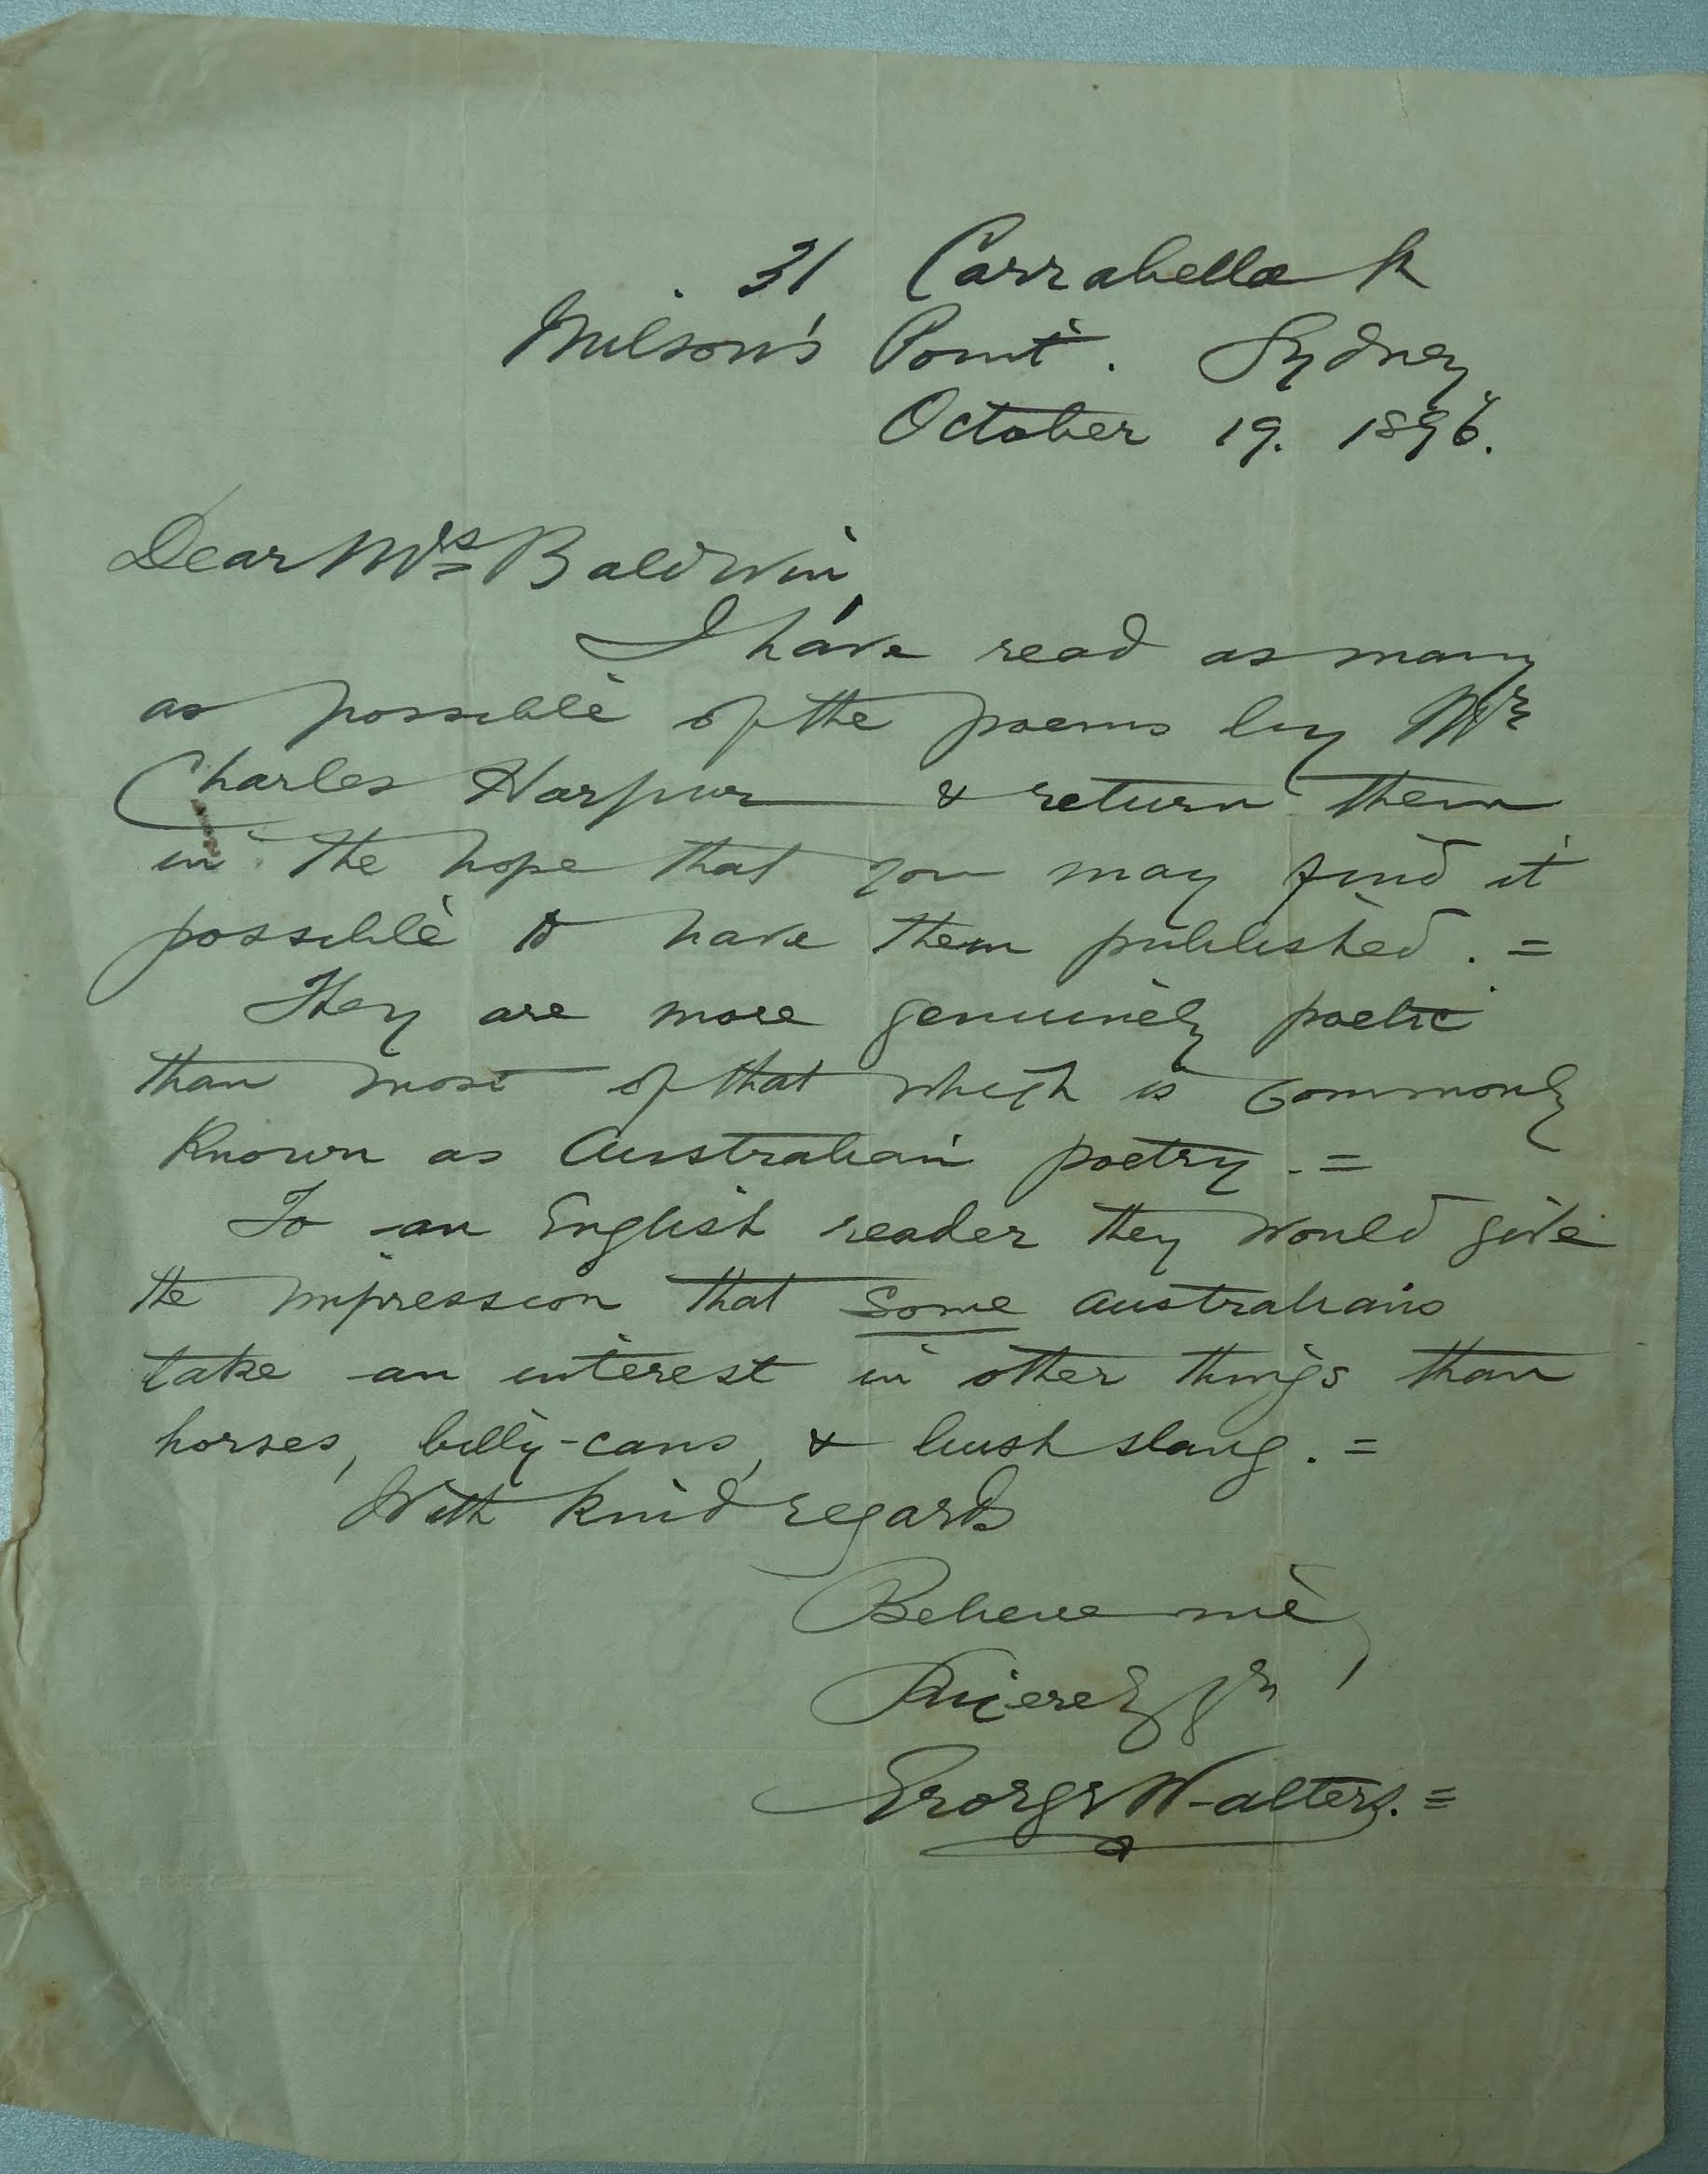 31 Carrabella St
Milson's Point. Sydney,
October 19. 1896.
Dear Mrs Baldwin,
I have read as many
as possible of the poems by Mr
Charles Harpur & return them
in the hope that you may find it
possible to have them published. =
They are more genuinely poetic
than most of that which is commonly
known as Australian poetry. =
To an English reader they would give
the impression that some Australians
take an interest in other things than
horses, billy-cans, & bush slang. =
With kind regards
Believe me,
Sincerely yrs
George Walters. =